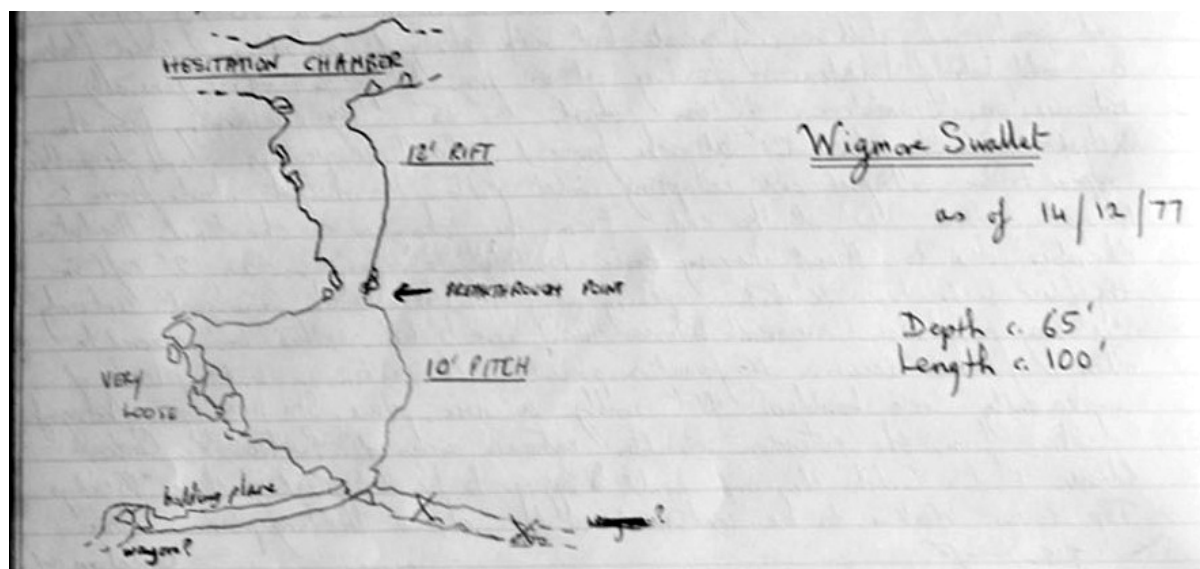 HESITATION CHAMBER
12' RIFT
Wigmore Swallet
as of 14/12/77
BREAKTHROUGH POINT
Depth c. 65'
Length c. 100'
10' PITCH
VERY
LOOSE
bedding plane
wayon?